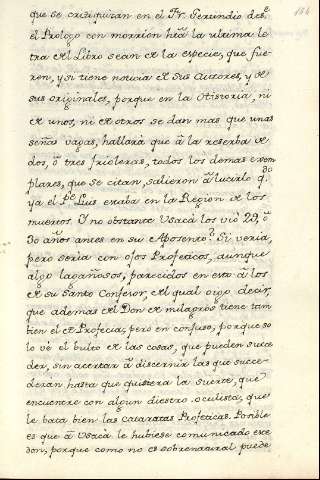 que se critiquizan en el Fr. Gerundio desde
el Prologo con morrion hasta la ultima le
tra del Libro sean de la especie, que fue-
ren, y si tiene noticia de sus Autores, y de
sus originales, porque en la Historia, ni
de unos, ni de otros se dan mas que unas
señas vagas, hallará que à la reserba de
dos, ò tres frioleras, todos los demas exem
plares, que se citan, salieron à lucirlo qdo
ya el Pe Luis estaba en la Region de los
muertos. Y no obstante Usacà los viò 29, ò
30 años antes en su Aposento? Si veria,
pero seria con ojos Profeticos, aunque
algo lagañosos, parecidos en esto à los
de su Santo Confesor, del qual oygo decir,
que ademas del Don de milagros tiene tam
bien el de Profecia; pero en confuso, porque so
lo vè el bulto de las cosas, que pueden suce
der, sin acertar à discernir las que succe-
deran hasta que quisiera la suerte, que
encuentre con algun diestro oculista, que
le bata bien las cataratas Profeticas. Posible
es que à Usacà le hubiese comunicado ese
don, porque como no es sobrenatural puede